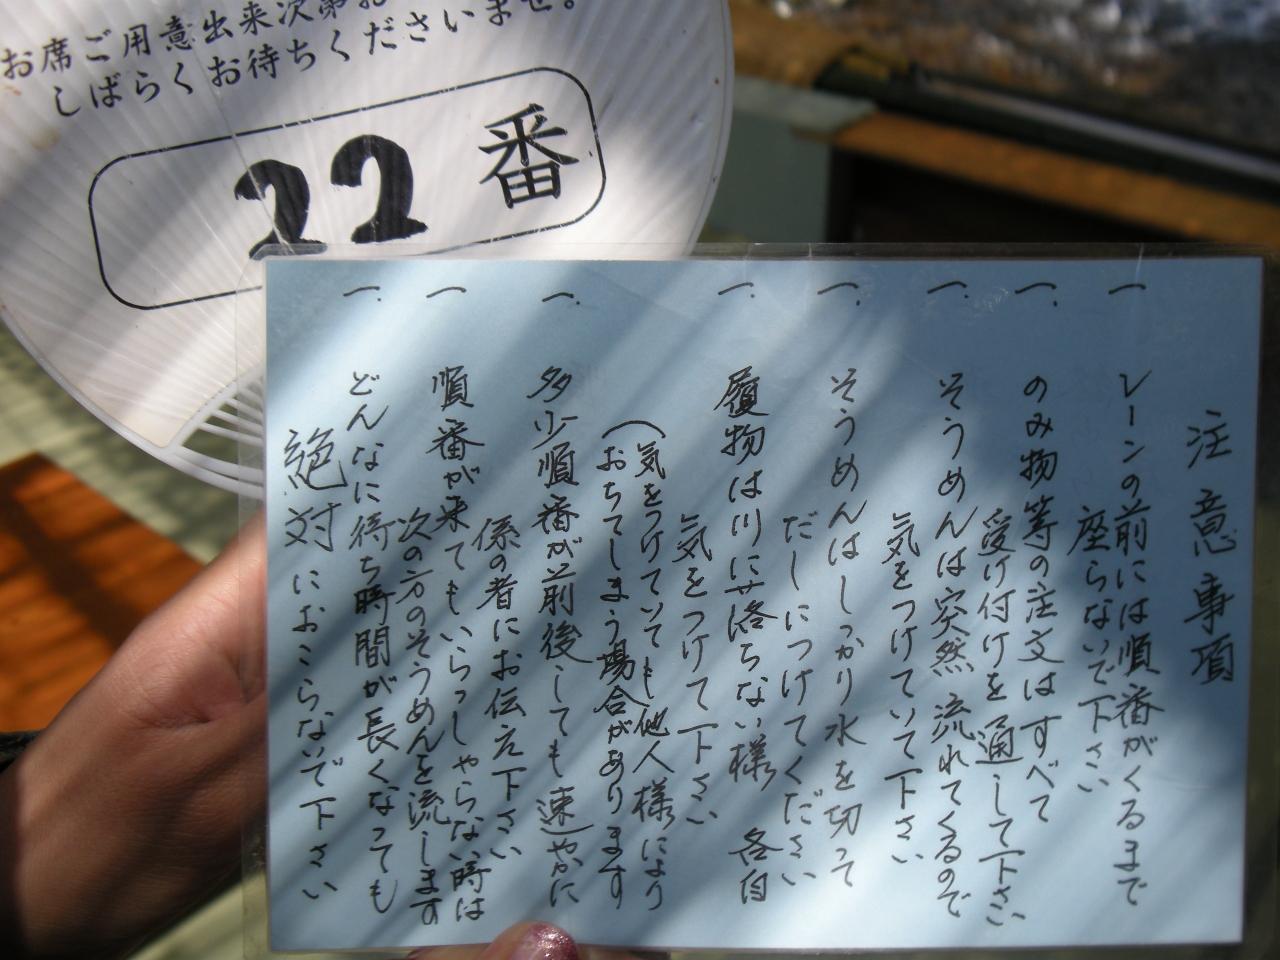 お席ご用意出来次第お
しばらくお待ちくださいませ。
22番
注意事項
一 レーンの前には順番がくるまで
座らないで下さい
一、のみ物等の注文はすべて
受け付けを通して下さい
一、そうめんは突然流れてくるので
気をつけていて下さい
一、そうめんはしっかり水を切って
だしにつけてください
一、履物は川に落ちない様 各自
気をつけて下さい
(気をつけていても他人様により
おちてしまう場合があります
一、多少順番が前後しても速やかに
係の者にお伝え下さい
一 順番が来てもいらっしゃらない時は
次の方のそうめんを流します
一、どんなに待ち時間が長くなっても
絶対におこらないで下さい